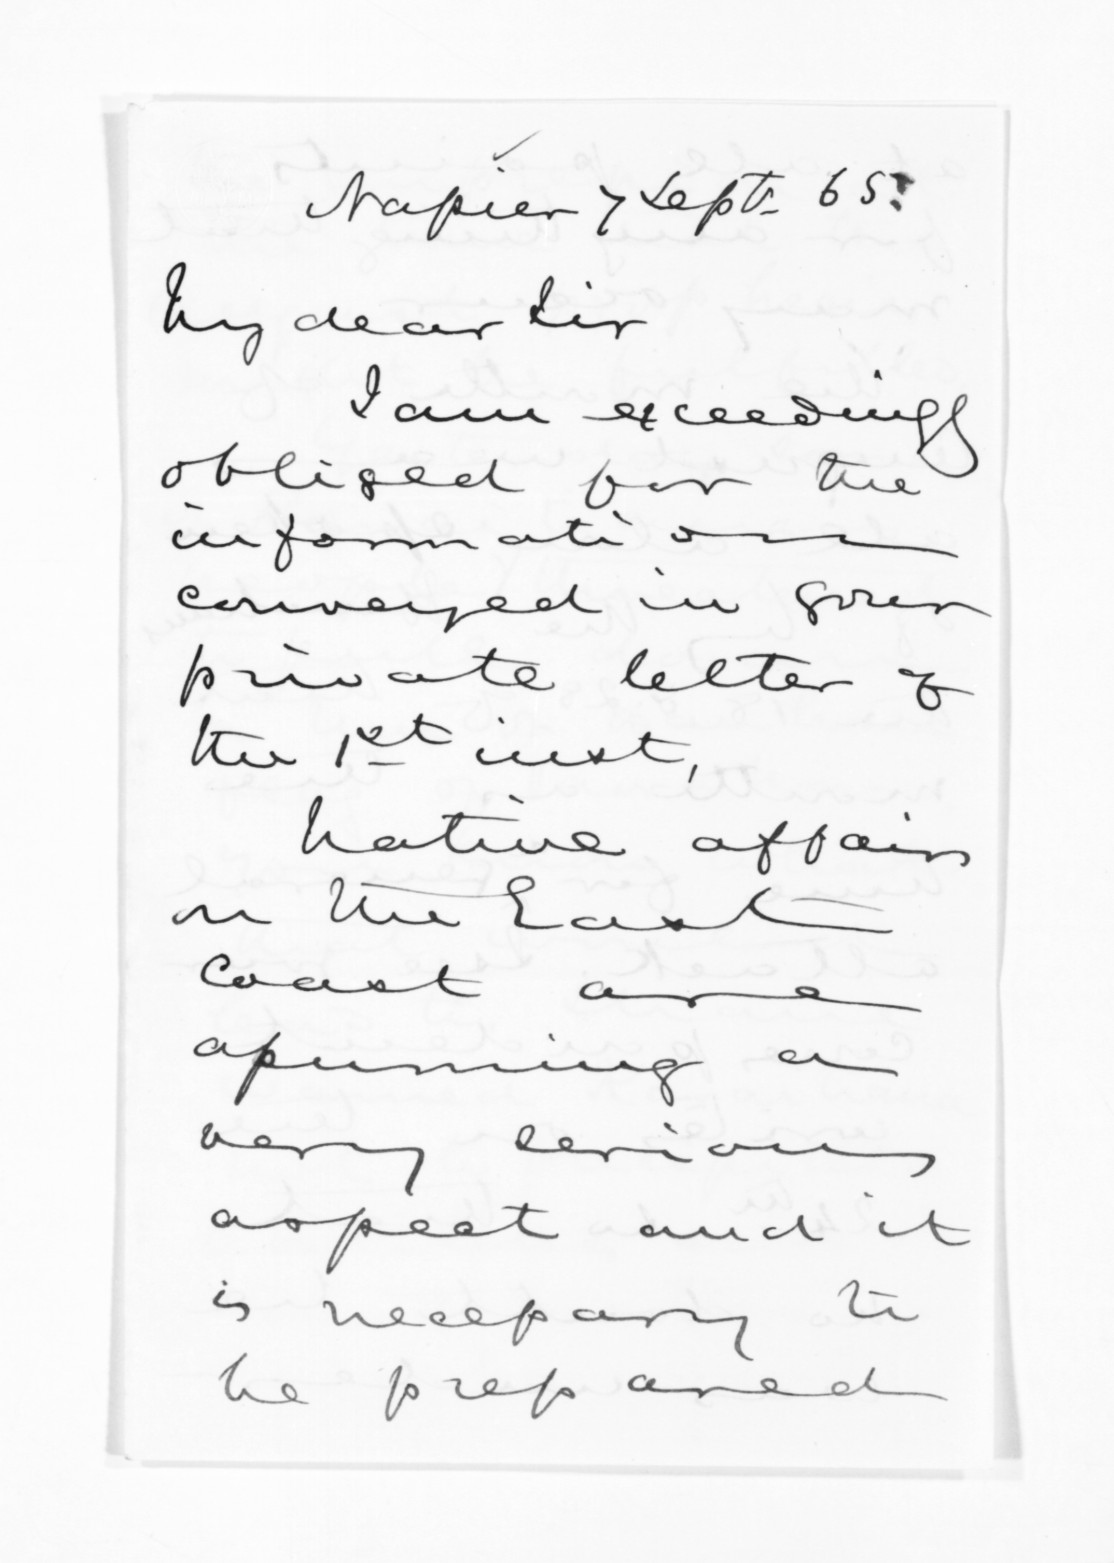 Napier 7 Sept. 65.
My dear Sir
I am exceedingly
obliged for the
information
conveyed in your
private letter of
the 1st inst,
Native affairs
on the East
Coast are
assuming a
very serious
aspect and it
is necessary to
be prepared